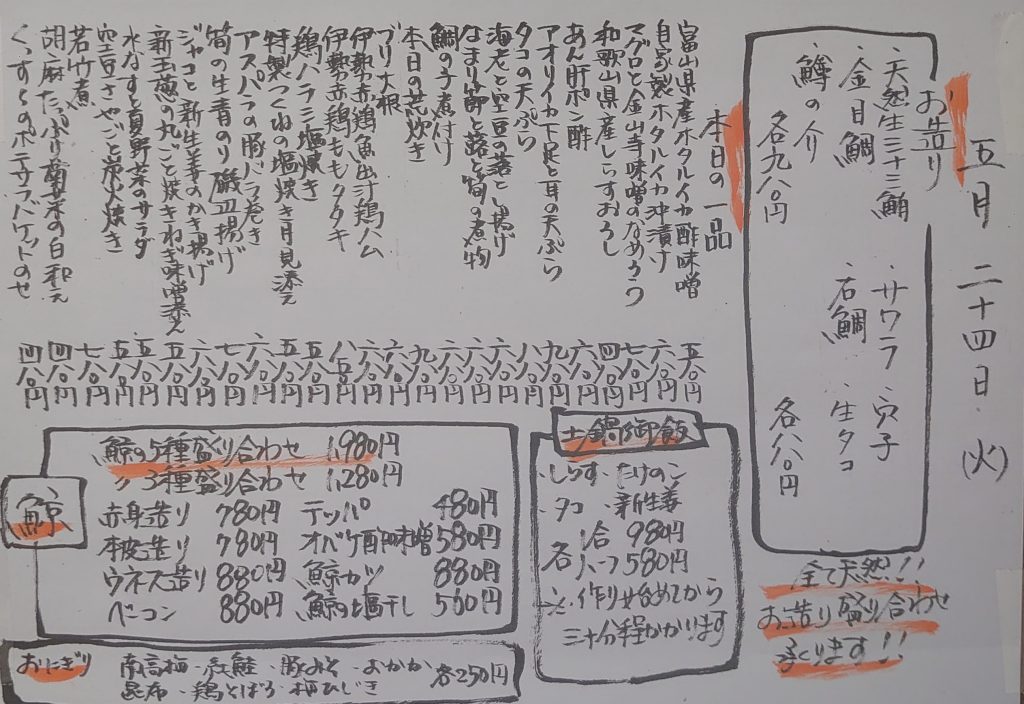 五月 二十四日 (火)
お造り
・天然生三十三鮪 ・サワラ ・穴子
・金目鯛 ・石鯛 ・生タコ
・鱒の介
各九八〇円 各八八〇円
全て天然!!
お造り盛り合わせ
承ります!!
本日の一品
富山県産ホタルイカ酢味噌 五八〇円
自家製ホタルイカ沖漬け 六八〇円
マグロと金山寺味噌のなめろう 七八〇円
和歌山県産しらすおろし 四八〇円
あん肝ポン酢 六八〇円
アオリイカ下足と耳の天ぷら 九八〇円
タコの天ぷら 八八〇円
海老と空豆の落とし揚げ 六八〇円
なまり節と蕗と筍の煮物 六八〇円
鯛の子煮付け 九八〇円
本日の荒炊き 九八〇円
ブリ大根 六八〇円
伊勢赤鶏魚出汁鶏ハム 六八〇円
伊勢赤鶏ももタタキ 八五〇円
鶏ハラミ塩焼き 五八〇円
特製つくねの塩焼き月見添え 五八〇円
アスパラの豚バラ巻き 六八〇円
筍の生青のり磯辺揚げ 七八〇円
ジャコと新生姜のかき揚げ 六八〇円
新玉葱の丸ごと焼きねぎ味噌添え 五八〇円
水なすと夏野菜のサラダ 五八〇円
空豆さやごと炭火焼き 五八〇円
若竹煮 七八〇円
胡麻たっぷりの白和え 四八〇円
くんまのポテサラバケットのせ 四八〇円
土鍋御飯
・しらす・たけのこ
・タコ ・新生姜
各 1合 980円
ハーフ 580円
※作り始めてから
三十分程かかります
鯨
鯨の5種盛り合わせ 1,980円
〃 3種盛り合わせ 1,280円
赤身造り 780円 テッパ 480円
本皮造り 780円 オバケ酢味噌 580円
ウネス造り 880円 鯨カツ 880円
ベーコン 880円 鯨の塩干し 500円
おにぎり
南高梅・紅鮭・豚みそ・おかか
昆布・鶏そぼろ・梅ひじき
各250円